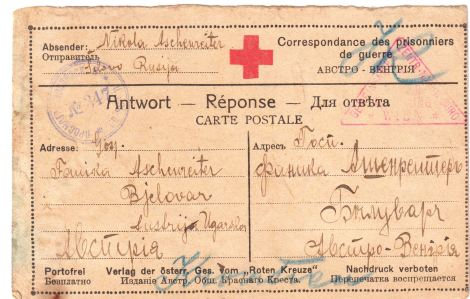 Absender: Nikola Aschenreiter
Отправитель
Rusija
Correspondance des prisonniers
de guerre
АВСТРО - ВЕНГРІЯ
№ 247
Antwort — Réponse — Для отвѣта
CARTE POSTALE
Adresse: Gosp.
Faniska Aschenreiter
Bjelovar
Austrija Ugarska
Австрія
Адресъ Госп.
Фаника Ашенрейтеръ
Билуваръ
Австро-Венгрія
Portofrei Verlag der österr. Ges. vom „Roten Kreuze" Nachdruck verboten
Безплатно Изданіе Австр. Общ. Краснаго Креста. Перепечатка воспрещается